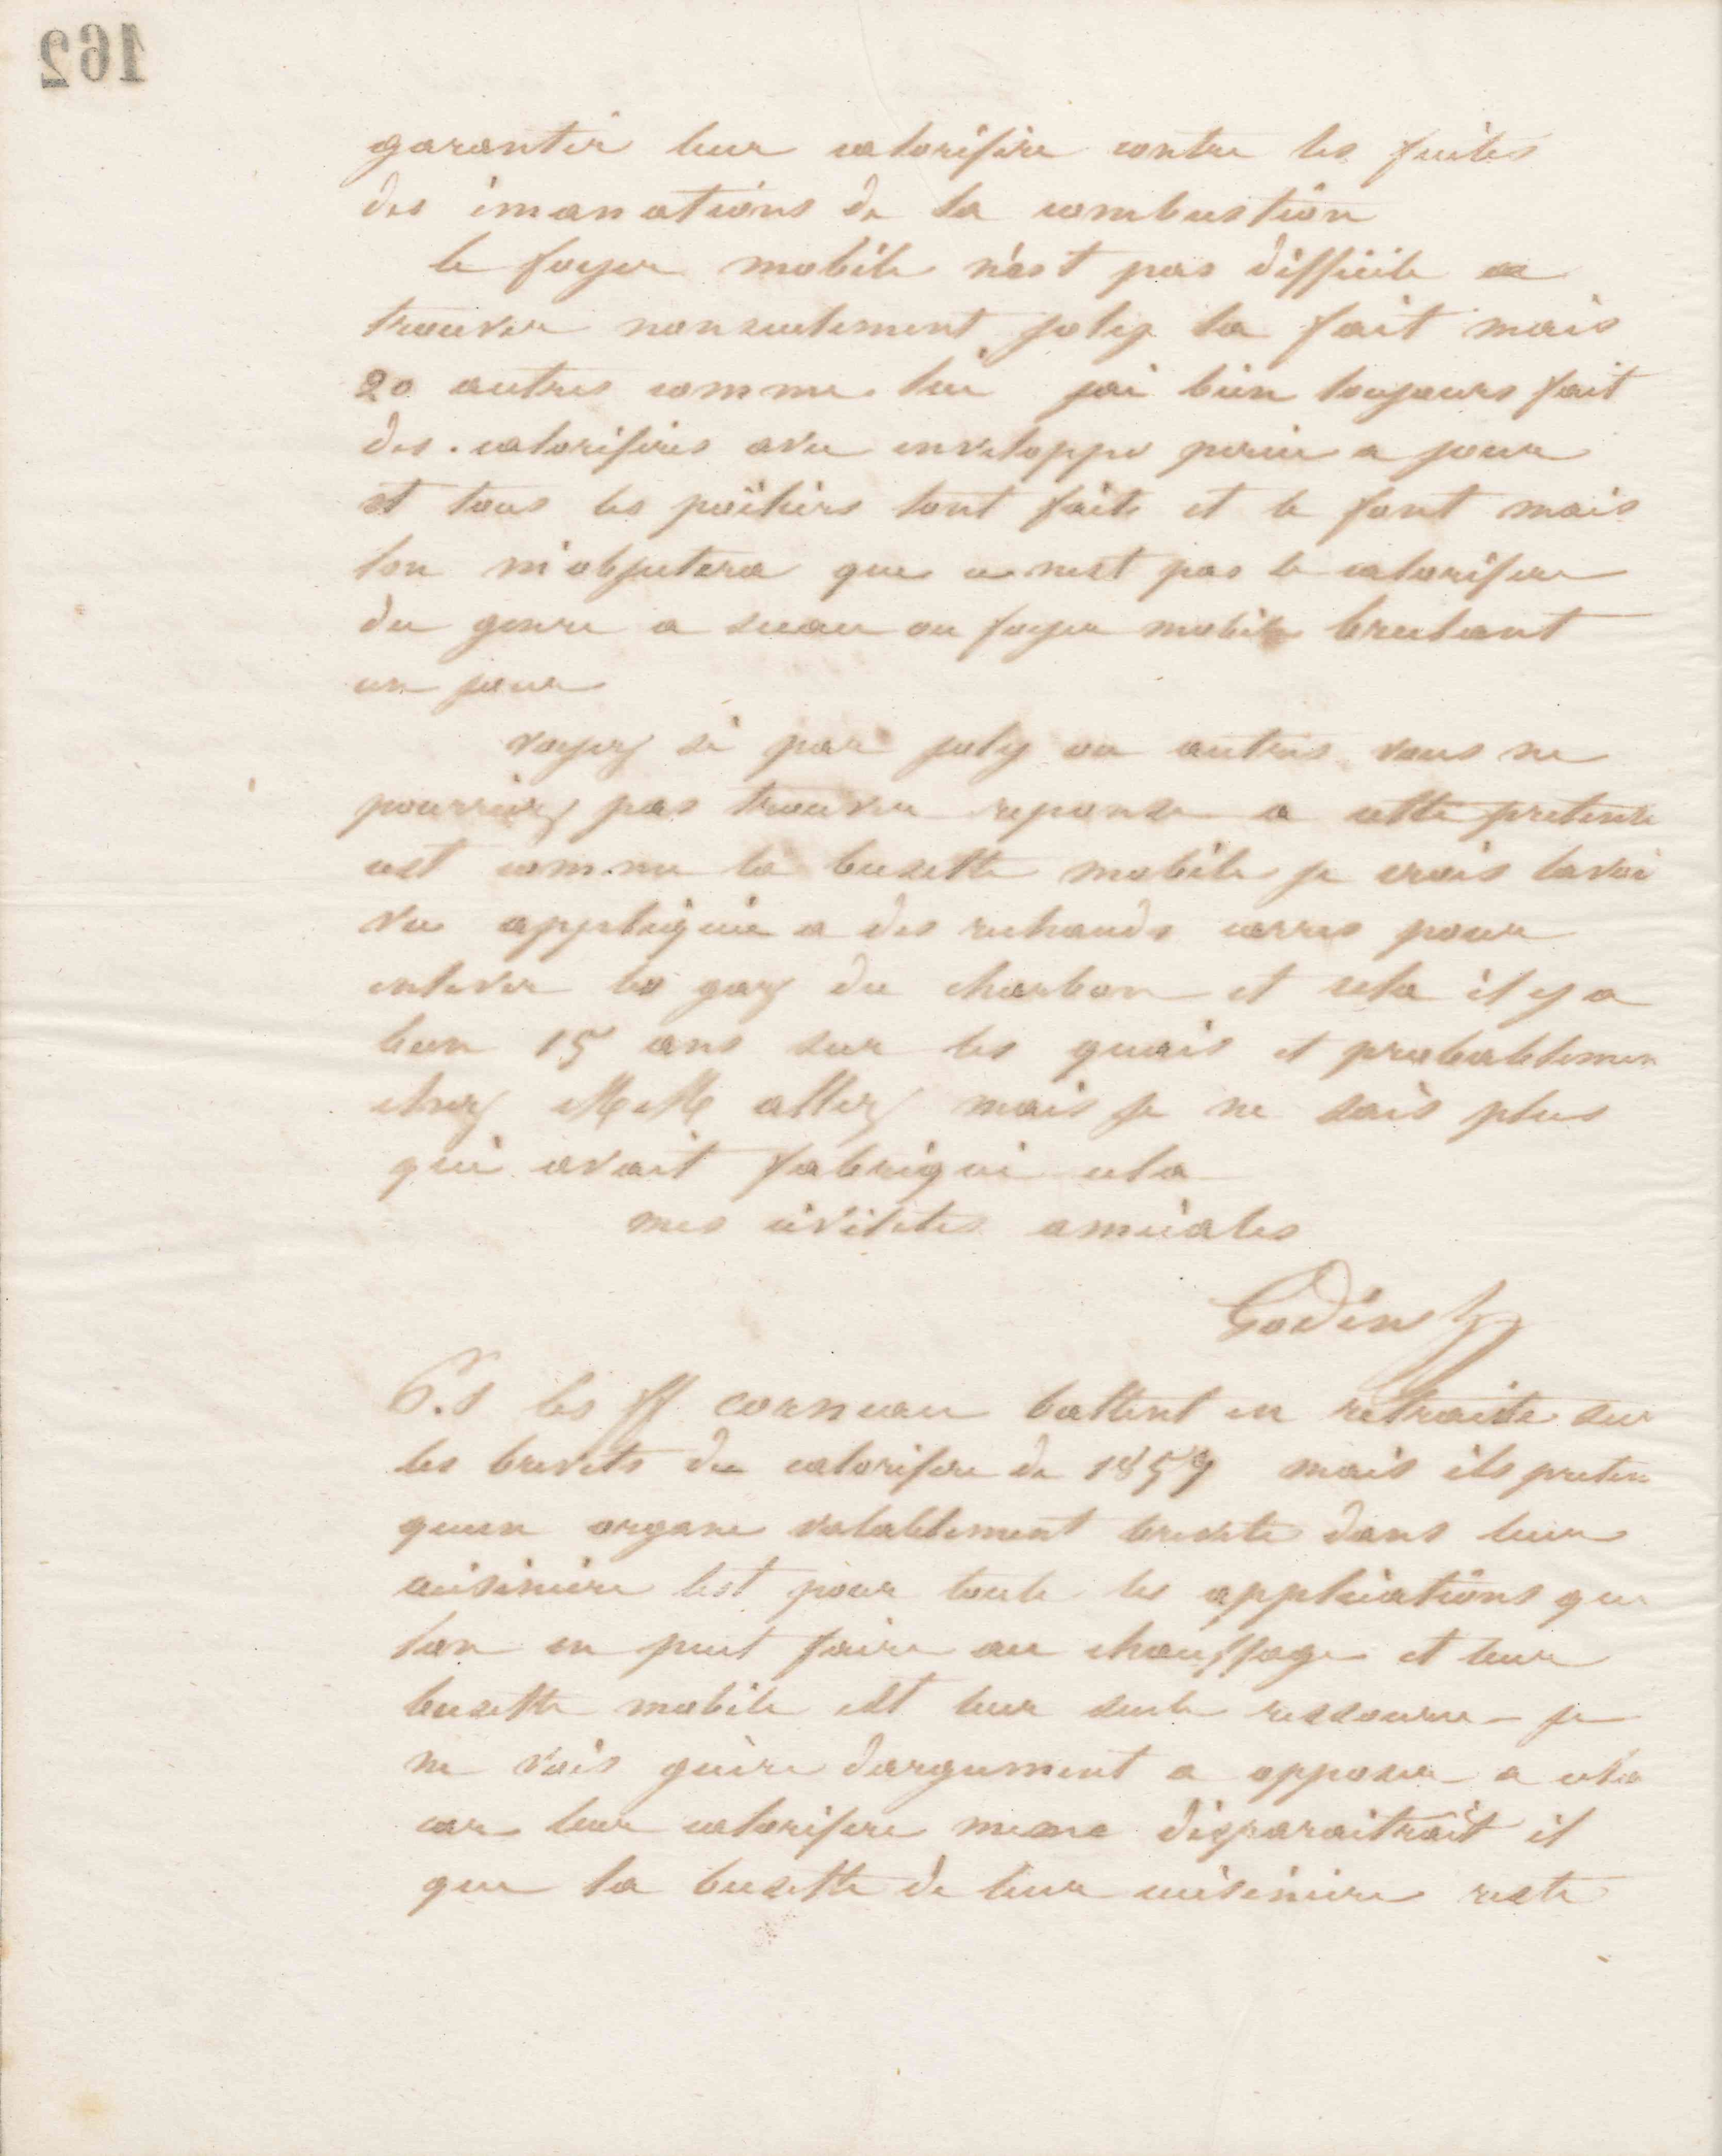 162
garantir leur calorifère contre les fuites
des émanations de la combustion
le foyer mobile n'est pas difficile a
trouver nonseulement joly la fait mais
20 autres comme lui jai bien toujours fait
des calorifères avec enveloppe percée a jour
et tous les poëliers lont faits et le font mais
lon m'objectera que ce nest pas le calorifère
du genre a sceau ou foyer mobile brulant
un jour
voyez si par joly ou autres vous ne
pourriez pas trouver reponse a cette pretente
cest comme la busette mobile je crois lavoi
vu appliquée a des rechauds carres pour
enlever les gaz du charbon et cela il y a
bien 15 ans sur les quais et probablemen
chez MM allez mais je ne sais plus
qui avait fabriqué cela
mes civilites amicales
Godin
P.S les ff corneau battent en retraite sur
les brevets du calorifère de 1859 mais ils preten
quun organe valablement breveté dans leur
cuisinière lest pour toute les applications que
lon en peut faire au chauffage et leur
busette mobile est leur seule ressource - je
ne vois guère dargument a opposer a cela
car leur calorifère meme disparaitrait il
que la busette de leur cuisinière reste